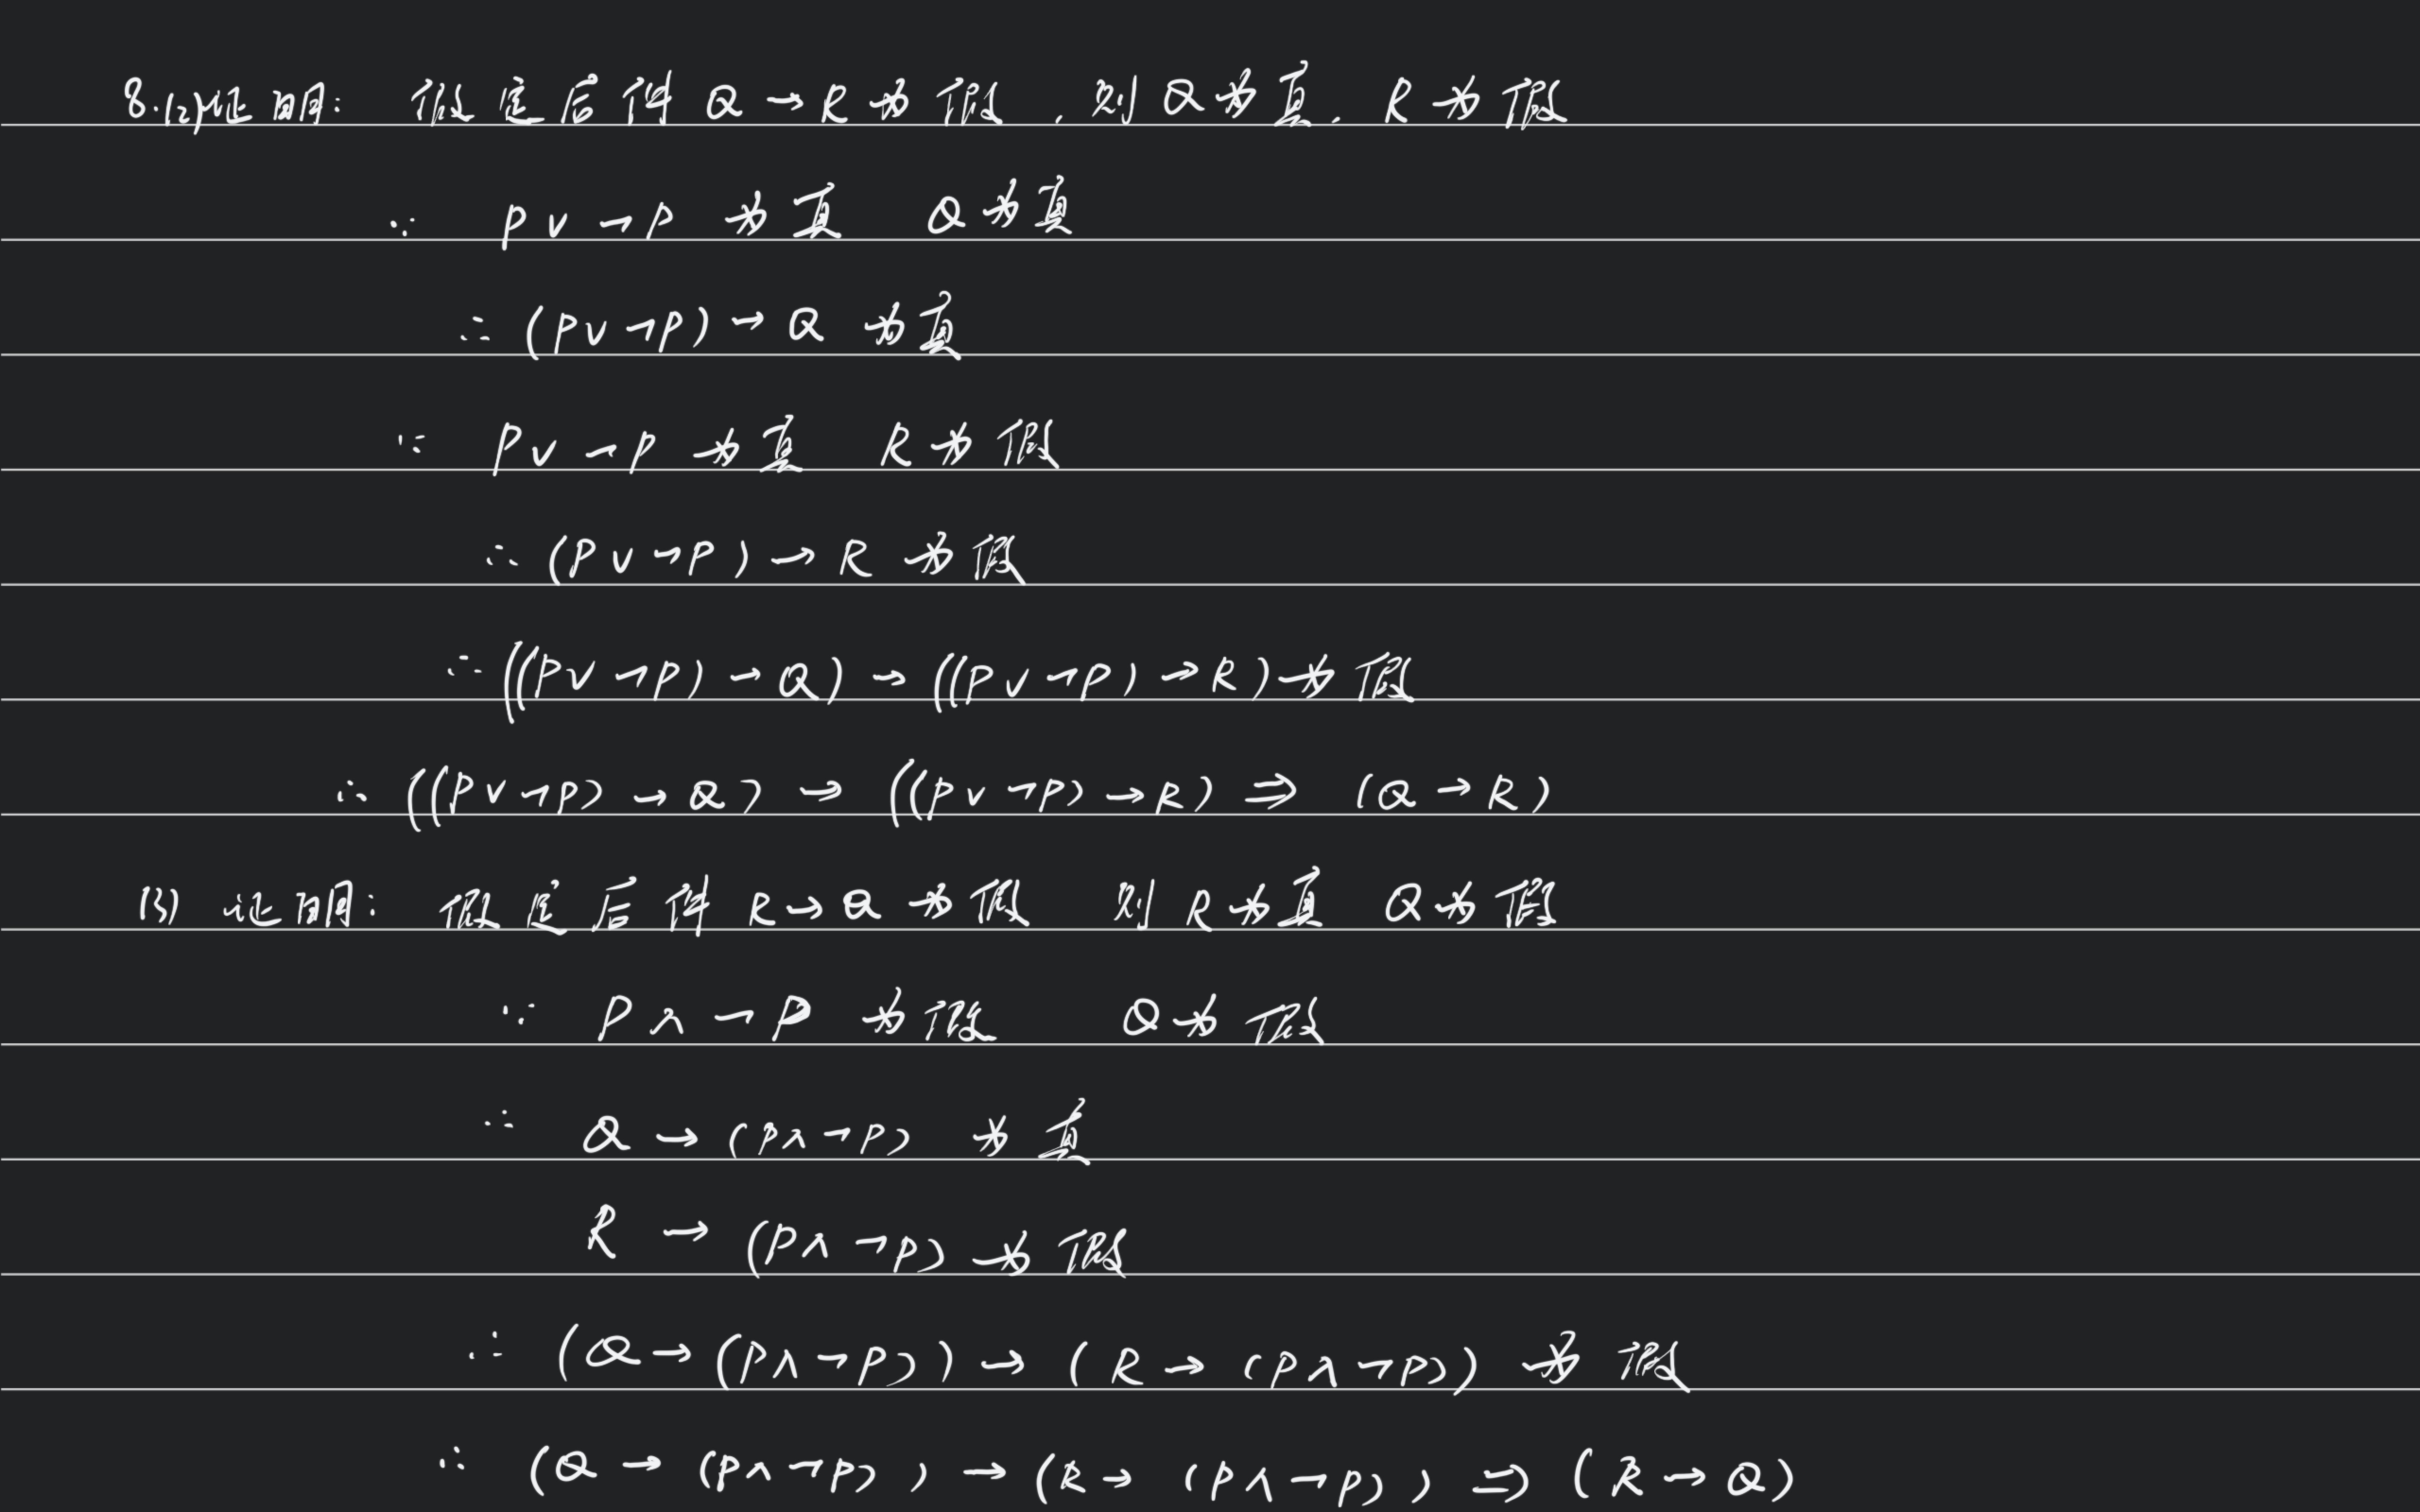 8.(2)证明: 假定后件 Q→R 为假,则Q为真,R为假
∵ P∨¬P 为真 Q为真
∴ (P∨¬P)→Q 为真
∵ P∨¬P 为真 R为假
∴ (P∨¬P)→R 为假
∴ ((P∨¬P)→Q)→((P∨¬P)→R)为假
∴ ((P∨¬P)→Q)→((P∨¬P)→R)⇒(Q→R)
(3) 证明: 假定后件 R→Q 为假 则 R为真 Q为假
∵ P∧¬P 为假 Q为假
∴ Q→(P∧¬P) 为真
R→(P∧¬P)为假
∴ (Q→(P∧¬P))→(R→(P∧¬P)) 为假
∴ (Q→(P∧¬P))→(R→(P∧¬P))⇒(R→Q)